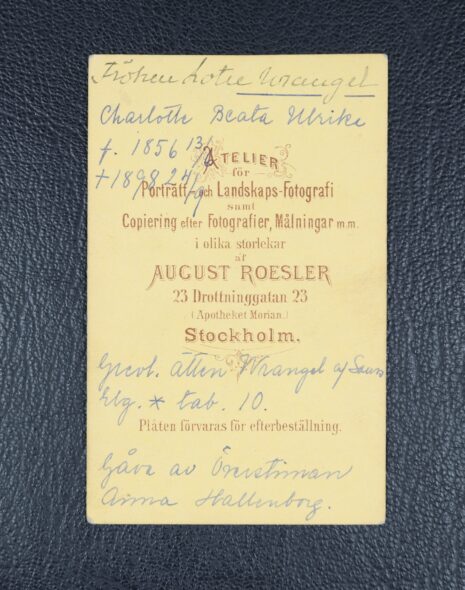 Fröken Lotte Wrangel
Charlotte Beata Ulrike
f. 1856 13/
† 1898 24/9
ATELIER
för
Porträtt- och Landskaps-Fotografi
samt
Copiering efter Fotografier, Målningar m.m.
i olika storlekar
af
AUGUST ROESLER
23 Drottninggatan 23
(Apotheket Morian.)
Stockholm.
Grevl. ätten Wrangel af Sauss
Elg. * tab. 10.
Plåten förvaras för efterbeställning.
Gåva av Överstinnan
Anna Hallenborg.